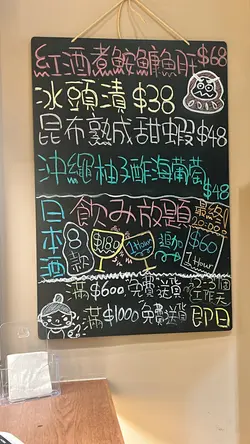 紅酒煮鮟鱇魚肝 $68
冰頭漬 $38
昆布熟成甜蝦 $48
沖繩柚子醋海葡萄 $48
日本酒 飲み放題
8款 $180 1 Hour 追加 $60 1 Hour
滿$600免費送貨 2-3個工作天
滿$1000免費送貨 即日